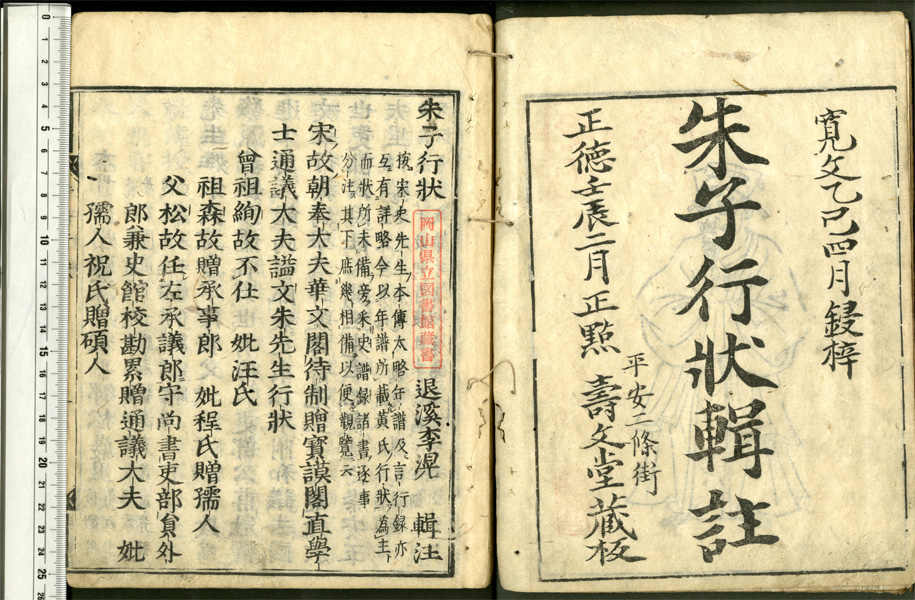 寛文乙巳四月鋟梓
朱子行狀輯註
平安二條街
正德壬辰二月正點　壽文堂藏板
朱子行狀　退溪李滉　輯注
岡山県立図書館蔵書
按宋史先生本傳太略年譜及言行録亦
互有詳略今以年譜所載黄氏行狀爲主
而狀所未備旁采史譜録諸書逐事
分注其下庶幾相備以便觀覽云
宋故朝奉大夫華文閣待制贈寳謨閣直學
士通議大夫謚文朱先生行狀
曾祖絢故不仕　妣汪氏
祖森故贈承事郎　妣程氏贈孺人
父松故任左承議郎守尚書吏部員外
郎兼史館校勘累贈通議大夫　妣
孺人祝氏贈碩人